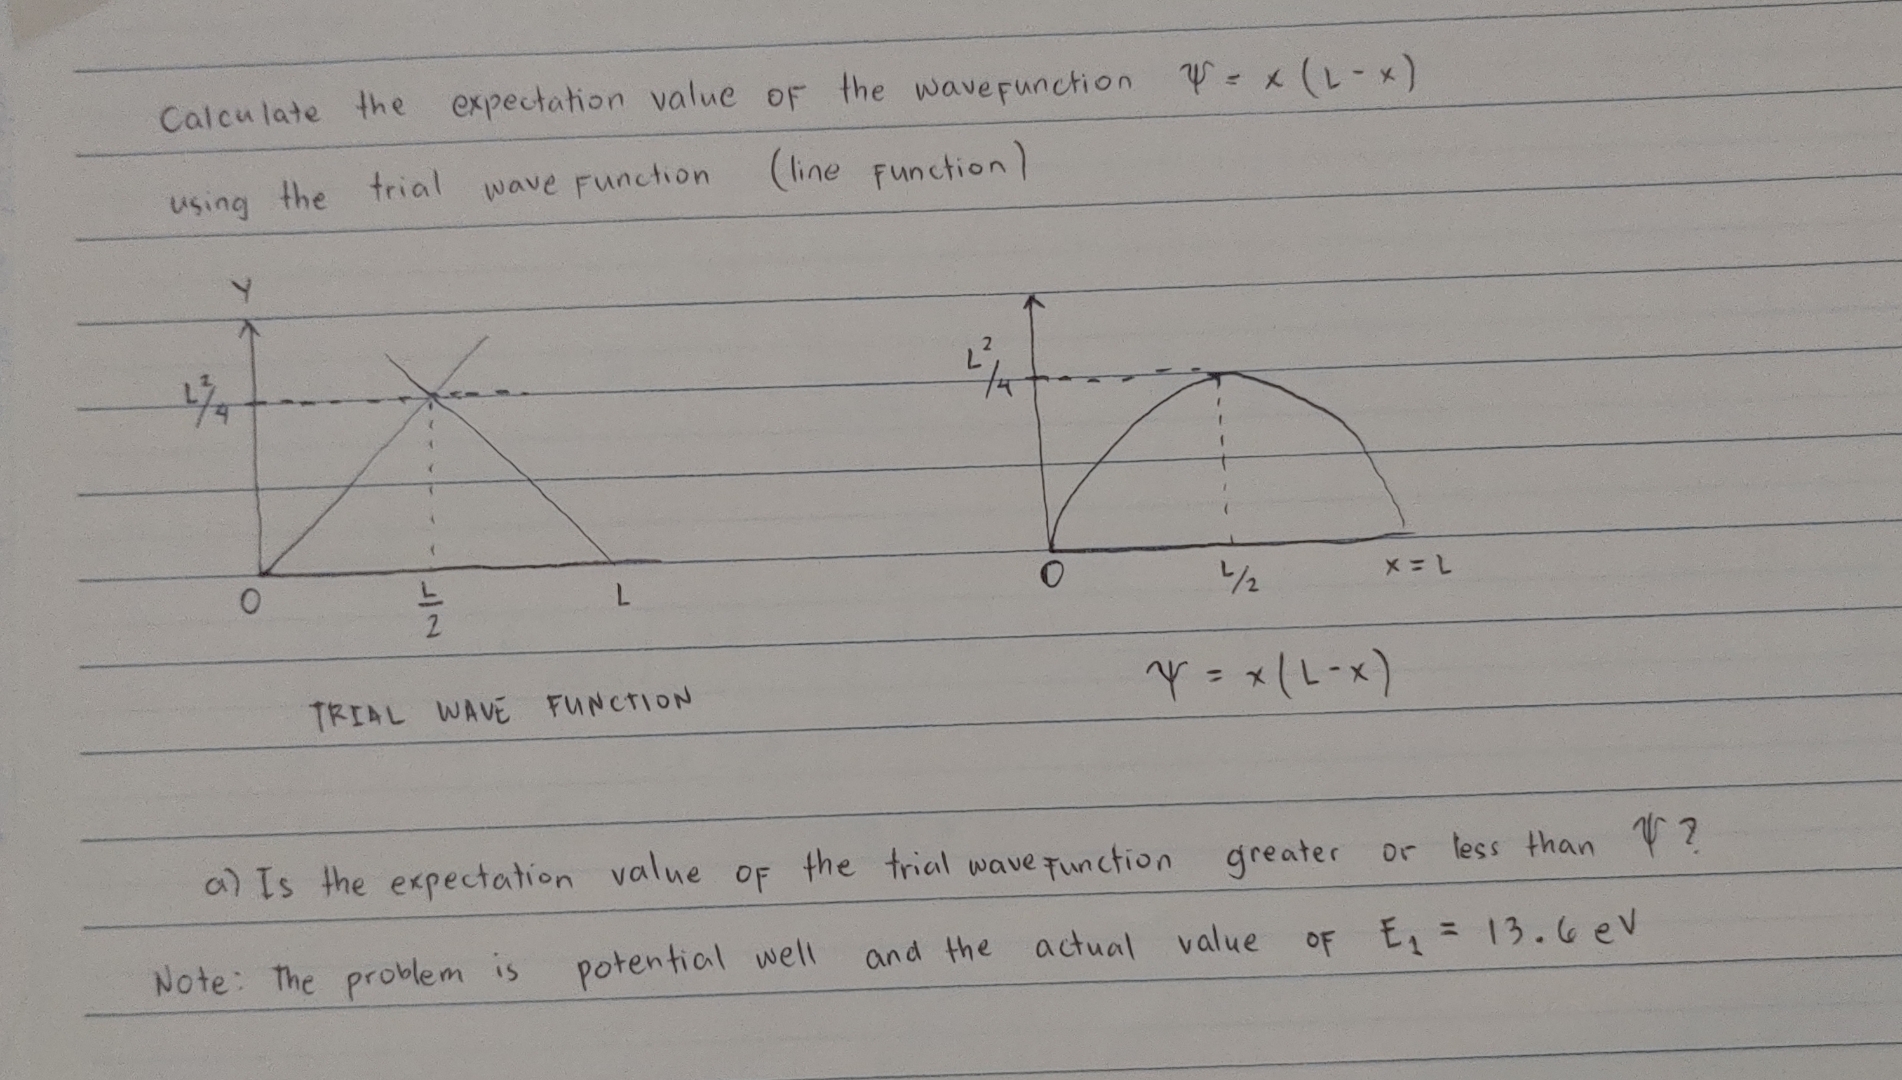 Calculate the expectation value of the wavefunction Ψ = x (L-x)
using the trial wave function (line function)
Y
L²/4
L²/4
0
L/2
L
0
L/2
x = L
TRIAL WAVE FUNCTION
Ψ = x(L-x)
a) Is the expectation value of the trial wavefunction greater or less than Ψ?
Note: The problem is potential well and the actual value of E₁ = 13.6 eV